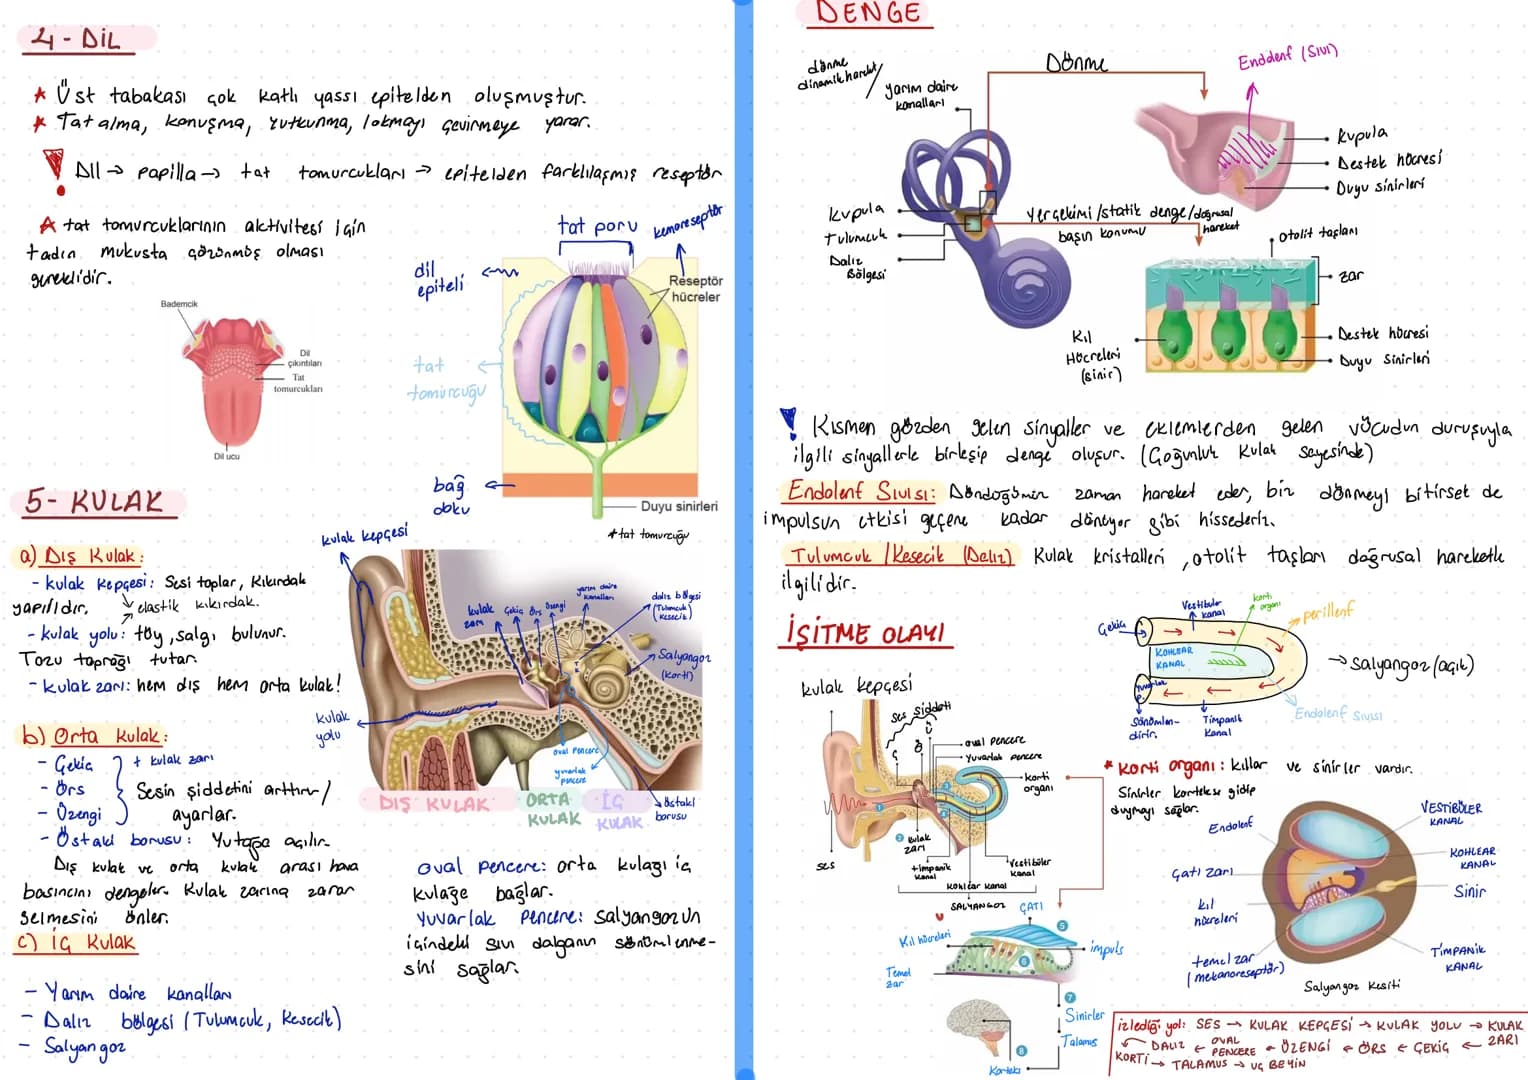 4- DİL
★ Üst tabakası çok katlı yassı epitelden oluşmuştur.
★ Tat alma, konuşma, yutkunma, lokmayı çevirmeye yarar.
! Dil → papilla → tat tomurcukları → epitelden farklılaşmış reseptör
★ tat tomurcuklarının aktivitesi için
tadın mukusta çözünmüş olması
gereklidir.
Bademcik
Dil
çıkıntıları
Tat
tomurcukları
Dil ucu
tat poru
kemoreseptör
dil
epiteli
Reseptör
hücreler
tat
tomurcuğu
bağ
doku
Duyu sinirleri
*tat tomurcuğu
5- KULAK
a) Dış Kulak:
- kulak kepçesi: Sesi toplar, Kıkırdak
yapılıdır. elastik kıkırdak.
- kulak yolu: tüy, salgı bulunur.
Tozu toprağı tutar.
- kulak zarı: hem dış hem orta kulak!
b) Orta kulak:
- Çekiç + kulak zarı
- Örs
- Üzengi
Sesin şiddetini arttırır/
ayarlar.
- Östaki borusu: Yutağa açılır.
Dış kulak ve orta kulak arası hava
basıncını dengeler. Kulak zarına zarar
gelmesini önler.
c) İç Kulak
- Yarım daire kanalları
- Dalız bölgesi (Tulumcuk, Kesecik)
- Salyangoz
kulak kepçesi
kulak zarı
Çekiç
Örs
Üzengi
yarım daire
kanalları
dalız bölgesi
(Tulumcuk)
(Kesecik)
Salyangoz
(korti)
kulak
yolu
oval pencere
yuvarlak
pencere
Östaki
borusu
DIŞ KULAK
ORTA
KULAK
İÇ
KULAK
oval pencere: orta kulağı iç
kulağa bağlar.
Yuvarlak Pencere: salyangozun
içindeki sıvı dalganın sönümlenme-
sini sağlar.
DENGE
dönme
dinamik hareket/
yarım daire
kanalları
Dönme
Endolenf (Sıvı)
Kupula
Destek hücresi
Duyu sinirleri
Kupula
Tulumcuk
Dalız
Bölgesi
Yerçekimi/statik denge/doğrusal
hareket
başın konumu
otolit taşları
zar
Kıl
Hücreleri
(sinir)
Destek hücresi
Duyu Sinirleri
! Kısmen gözden gelen sinyaller ve eklemlerden gelen vücudun duruşuyla
ilgili sinyallerle birleşip denge oluşur. (Çoğunluk Kulak Sayesinde)
Endolenf Sıvısı: Döndüğümüz zaman hareket eder, biz dönmeyi bitirsek de
impulsun etkisi geçene kadar dönüyor gibi hissederiz.
Tulumcuk/Kesecik (Dalız) Kulak kristalleri, otolit taşları doğrusal hareketle
ilgilidir.
İŞİTME OLAYI
Çekiç
Vestibular
kanal
korti
organı
perilenf
KOHLEAR
KANAL
→ Salyangoz (açık)
Yuvarlak
P.
Sönümlen-
dirir.
Timpanik
Kanal
Endolenf Sıvısı
kulak kepçesi
Ses şiddeti
Ç
Ö
Ü
oval pencere
Yuvarlak pencere
korti
organı
1
2 kulak
zarı
ses
timpanik
kanal
Vestibüler
kanal
Kohlear kanal
SALYANGOZ
* Korti organı: kıllar ve sinirler vardır.
Sinirler kortekse gidip
duymayı sağlar.
ÇATI
Kıl hücreleri
Temel
zar
5
6
impuls
7
Sinirler
Talamus
8
Korteks
Endolenf
Çatı zarı
kıl
hücreleri
temel zar
(mekanoreseptör)
VESTİBÜLER
KANAL
KOHLEAR
KANAL
Sinir
TİMPANİK
KANAL
Salyangoz Kesiti
izlediği yol: SES → KULAK KEPÇESİ → KULAK YOLU → KULAK
ZARI
DALIZ ← OVAL PENCERE ← ÜZENGİ ← ÖRS ← ÇEKİÇ ←
KORTİ → TALAMUS → UÇ BEYİN